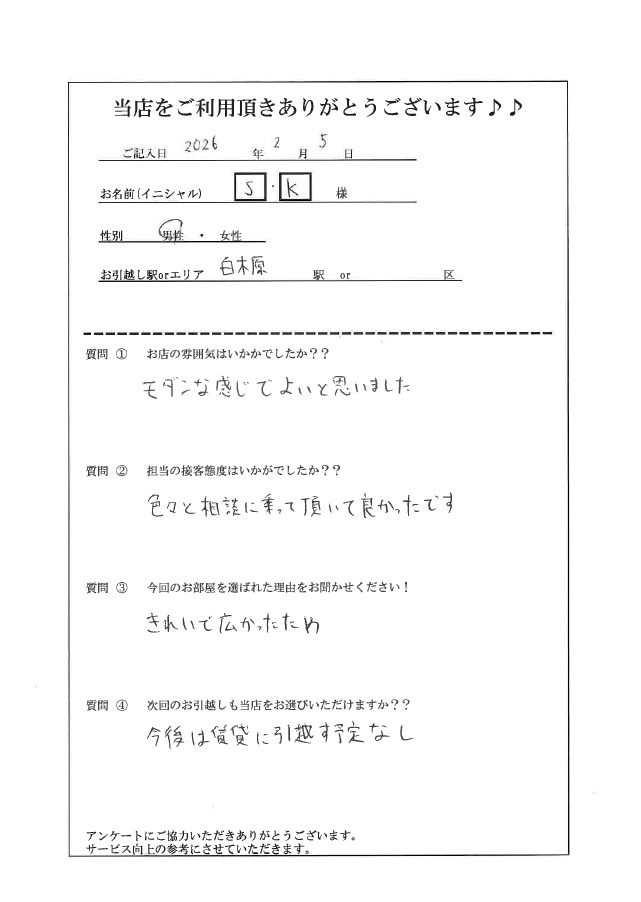 当店をご利用頂きありがとうございます♪♪
ご記入日 2026 年 2 月 5 日
お名前(イニシャル) S ・ K 様
性別 男性 ・ 女性
お引越し駅orエリア 白木原 駅 or 区
質問 ① お店の雰囲気はいかかでしたか??
モダンな感じでよいと思いました
質問 ② 担当の接客態度はいかがでしたか??
色々と相談に乗って頂いて良かったです
質問 ③ 今回のお部屋を選ばれた理由をお聞かせください!
きれいで広かったため
質問 ④ 次回のお引越しも当店をお選びいただけますか??
今後は賃貸に引越す予定なし
アンケートにご協力いただきありがとうございます。
サービス向上の参考にさせていただきます。